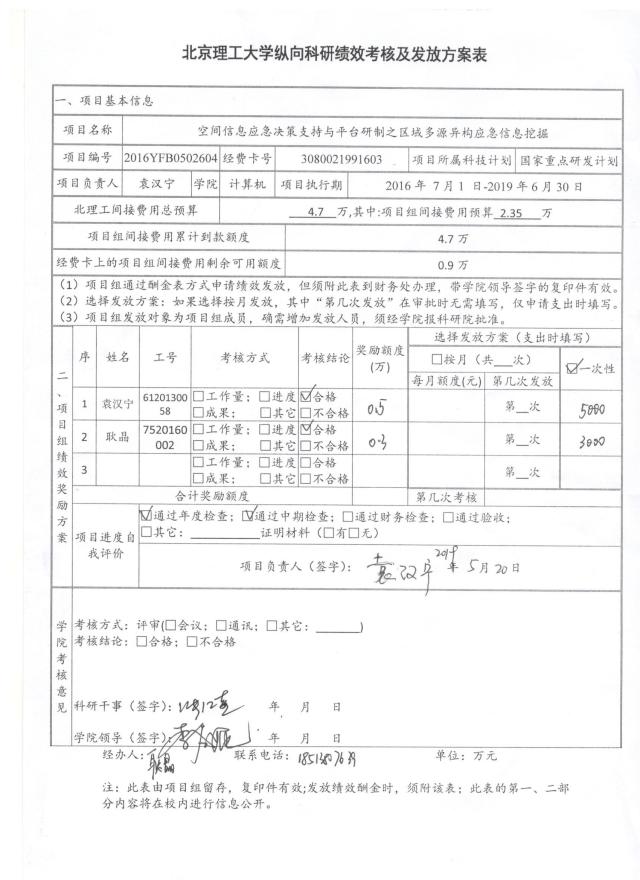 北京理工大学纵向科研绩效考核及发放方案表
一、项目基本信息
项目名称 空间信息应急决策支持与平台研制之区域多源异构应急信息挖掘
项目编号 2016YFB0502604 经费卡号 3080021991603 项目所属科技计划 国家重点研发计划
项目负责人 袁汉宁 学院 计算机 项目执行期 2016 年 7 月 1 日-2019 年 6 月 30 日
北理工间接费用总预算 4.7 万,其中:项目组间接费用预算 2.35 万
项目组间接费用累计到款额度 4.7 万
经费卡上的项目组间接费用剩余可用额度 0.9 万
（1）项目组通过酬金表方式申请绩效发放，但须附此表到财务处办理，带学院领导签字的复印件有效。
（2）选择发放方案：如果选择按月发放，其中“第几次发放”在审批时无需填写，仅申请支出时填写。
（3）项目组发放对象为项目组成员，确需增加发放人员，须经学院报科研院批准。
二、项目组绩效奖励方案
序 姓名 工号 考核方式 考核结论 奖励额度(万) 选择发放方案（支出时填写）
□按月（共__次） ☑一次性
每月额度(元) 第几次发放
1 袁汉宁 6120130058 □工作量；□进度 ☑合格 0.5 第__次 5000
□成果； □其它 □不合格
2 耿晶 7520160002 □工作量；□进度 ☑合格 0.3 第__次 3000
□成果； □其它 □不合格
3 □工作量；□进度 □合格 第__次
□成果； □其它 □不合格
合计奖励额度 第几次考核
项目进度自我评价 ☑通过年度检查；☑通过中期检查；□通过财务检查；□通过验收；
□其它：__________证明材料（□有□无）
项目负责人（签字）： 袁汉宁 2019 年 5 月 20 日
学院考核意见
考核方式：评审(□会议；□通讯；□其它：______)
考核结论：□合格；□不合格
科研干事（签字）： 年 月 日
学院领导（签字）： 年 月 日
经办人: 耿晶 联系电话: 单位：万元
注：此表由项目组留存，复印件有效;发放绩效酬金时，须附该表；此表的第一、二部
分内容将在校内进行信息公开。